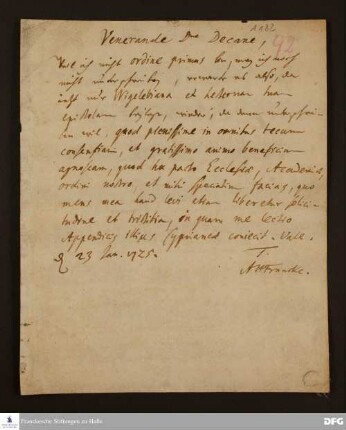 Venerande Dne Decane,
92
Weil ich nicht ordine primus bin, mag ich noch
nicht unterschreiben, remittire es also, da
nicht nur Wigelebiana et hesterna tua
epistolam beylege, wieder, da denn
will, quod plenissime in omnibus tecum
consentiam, et gratissimo animo beneficium
agnoscam, quod hac parte Ecclesiae, Academiae,
ordini nostro, et mihi speciatim facias, quo
mens mea haud levi etiam liberetur solici-
tudine et tristitia, in quam me lectio
Appendicis illius Cyprianeae coniecit. Vale.
d. 23 Jan. 1725.
T.
AHFrancke.
Franckesche Stiftungen zu Halle
DFG